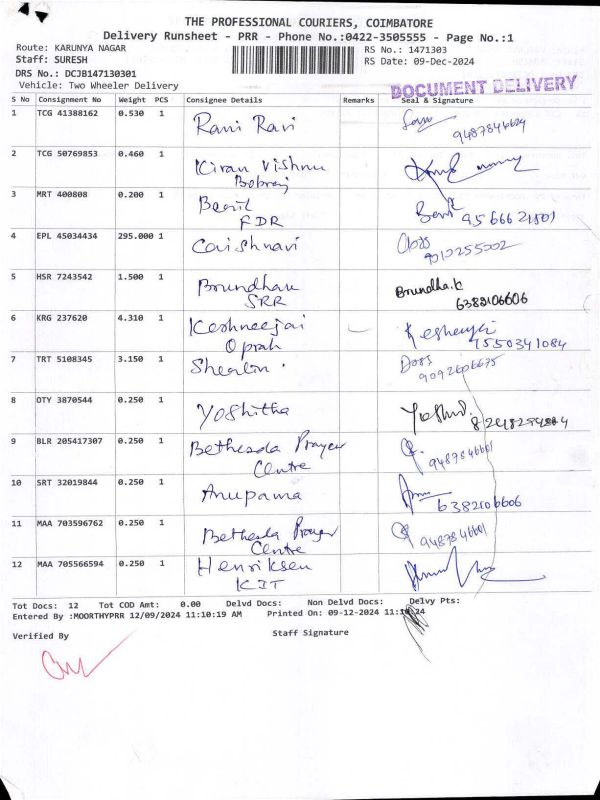 THE PROFESSIONAL COURIERS, COIMBATORE
Delivery Runsheet - PRR - Phone No.:0422-3505555 - Page No.:1
Route: KARUNYA NAGAR RS No.: 1471303
Staff: SURESH RS Date: 09-Dec-2024
DRS No.: DCJB147130301
Vehicle: Two Wheeler Delivery
DOCUMENT DELIVERY
S No Consignment No Weight PCS Consignee Details Remarks Seal & Signature
1 TCG 41388162 0.530 1 Rani Ravi
2 TCG 50769853 0.460 1 Kiran Vishnu
3 MRT 400808 0.200 1
FDR
4 EPL 45034434 295.000 1 Caishnavi 9012255002
5 HSR 7243542 1.500 1 Brundhau Brundha.k
SRR 6382106606
6 KRG 237620 4.310 1 Keshneejai
Oprah
7 TRT 5108345 3.150 1 9092606675
8 OTY 3870544 0.250 1 Yoshitha
9 BLR 205417307 0.250 1 Bethesda Prayer
Centre 9487846601
10 SRT 32019844 0.250 1 Anupama 6382106606
11 MAA 703596762 0.250 1 Bethesda Prayer
Centre 9487846601
12 MAA 705566594 0.250 1 Henriksen
KIT
Tot Docs: 12 Tot COD Amt: 0.00 Delvd Docs: Non Delvd Docs: Delvy Pts:
Entered By :MOORTHYPRR 12/09/2024 11:10:19 AM Printed On: 09-12-2024
Verified By Staff Signature